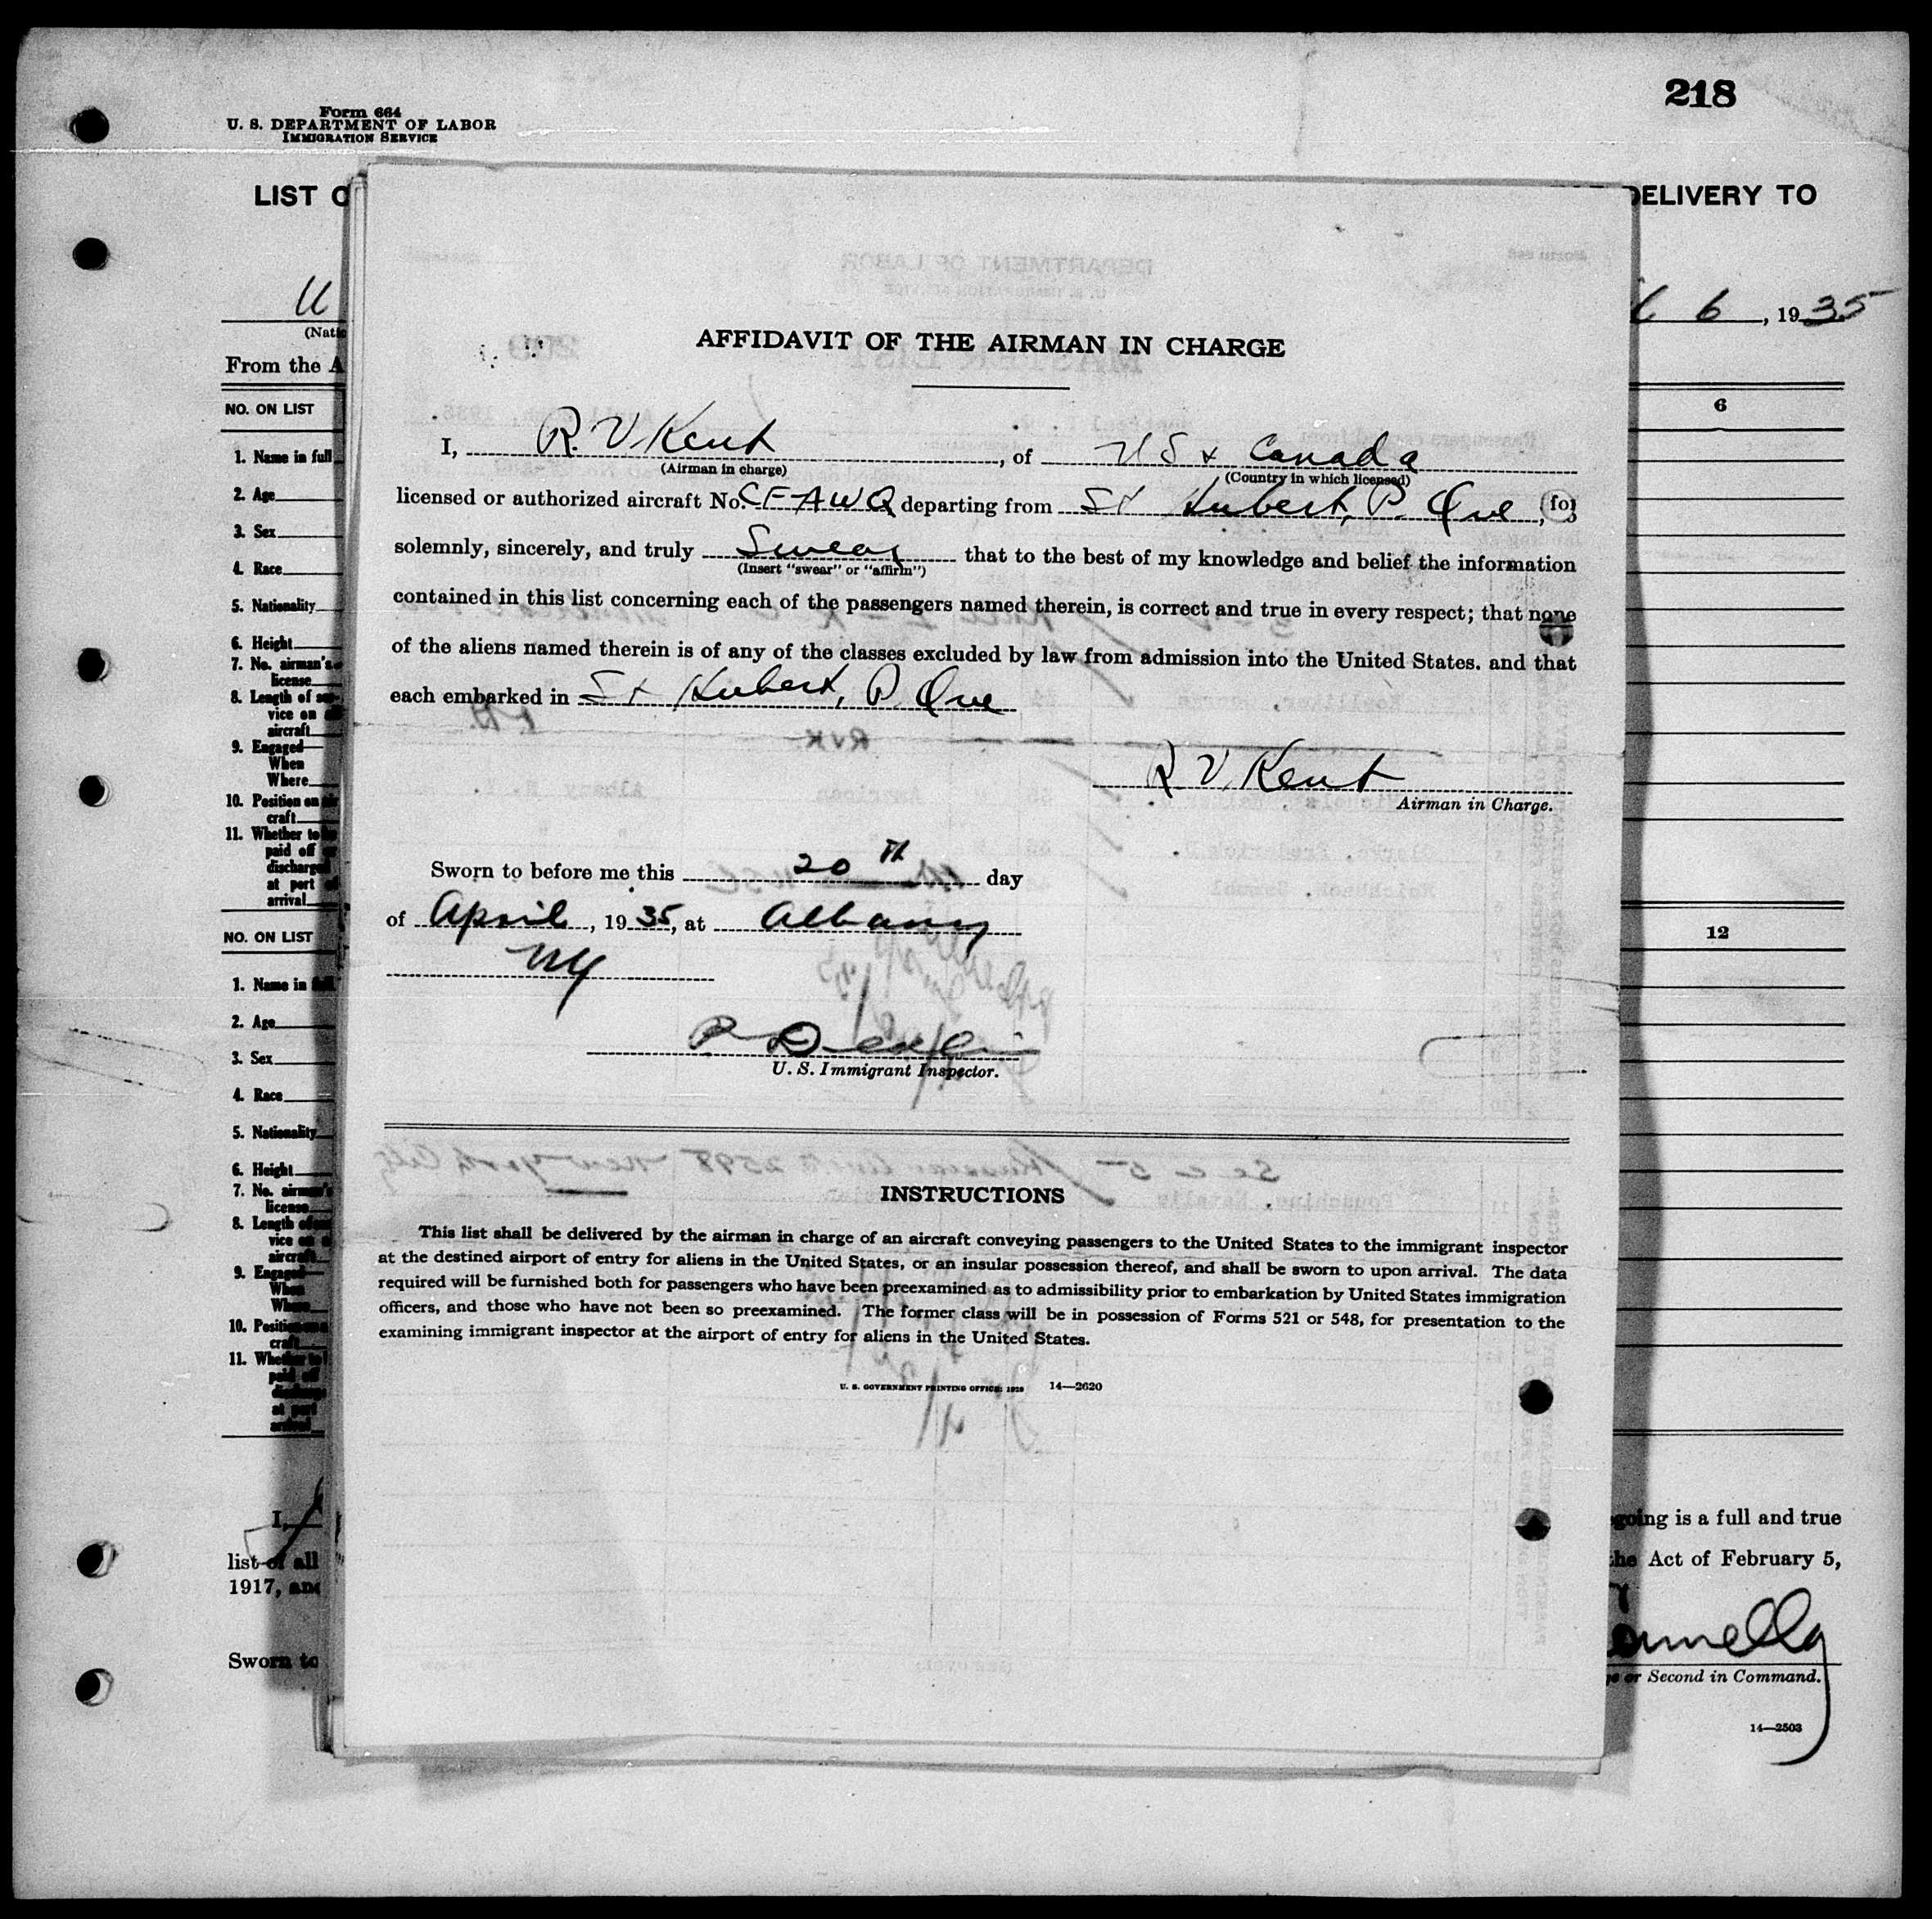 218
Form 664
U. S. DEPARTMENT OF LABOR
IMMIGRATION SERVICE
LIST
DELIVERY TO
6, 1935
From the
NO. ON LIST
6
1. Name in full
2. Age
3. Sex
4. Race
5. Nationality
6. Height
7. No. airman's
license
8. Length of
vice on
aircraft
9. Engaged—
When
Where
10. Position on
craft
11. Whether to
paid off
discharged
at port
arrival
NO. ON LIST
12
1. Name in
2. Age
3. Sex
4. Race
5. Nationality
6. Height
7. No. airman's
license
8. Length of
vice on
aircraft
9. Engaged—
When
Where
10. Position
craft
11. Whether to
paid off
discharged
at port
arrival
I,
going is a full and true
list of all
the Act of February 5,
1917, and
Sworn to
or Second in Command.
14—2503
AFFIDAVIT OF THE AIRMAN IN CHARGE
I, R. V Kent, of US & Canada
(Airman in charge) (Country in which licensed)
licensed or authorized aircraft No. CF-AWQ departing from St Hubert, P. Que, (fo)
solemnly, sincerely, and truly Swear that to the best of my knowledge and belief the information
(Insert "swear" or "affirm")
contained in this list concerning each of the passengers named therein, is correct and true in every respect; that none
of the aliens named therein is of any of the classes excluded by law from admission into the United States. and that
each embarked in St Hubert, P Que
R V. Kent
Airman in Charge.
Sworn to before me this 20th day
of April, 1935, at Albany
NY
U. S. Immigrant Inspector.
INSTRUCTIONS
This list shall be delivered by the airman in charge of an aircraft conveying passengers to the United States to the immigrant inspector
at the destined airport of entry for aliens in the United States, or an insular possession thereof, and shall be sworn to upon arrival. The data
required will be furnished both for passengers who have been preexamined as to admissibility prior to embarkation by United States immigration
officers, and those who have not been so preexamined. The former class will be in possession of Forms 521 or 548, for presentation to the
examining immigrant inspector at the airport of entry for aliens in the United States.
U. S. GOVERNMENT PRINTING OFFICE: 1929 14—2620